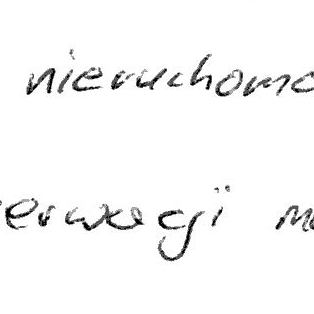 nieruchomo
erwacji m